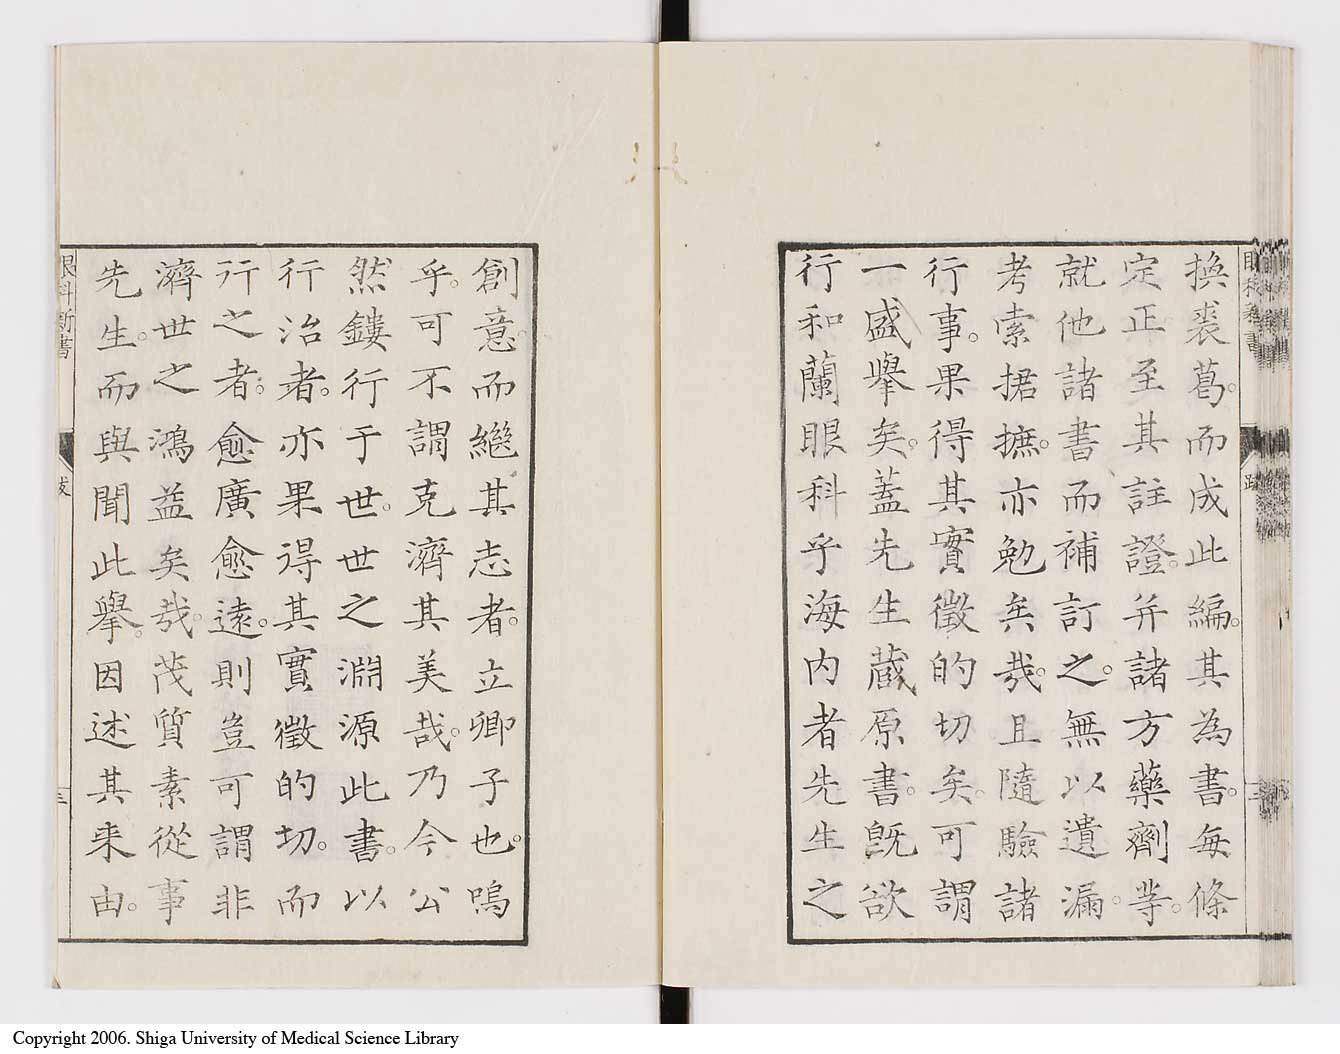 換裘葛。而成此編。其為書。每條
定正至其註證。并諸方藥劑等。
就他諸書而補訂之。無以遺漏。
考索捃摭。亦勉矣哉。且隨驗諸
行事。果得其實徵的切矣。可謂
一盛擧矣。蓋先生蔵原書。既欲
行和蘭眼科乎海内者先生之
創意。而繼其志者。立卿子也。嗚
乎。可不謂克濟其美哉。乃今公
然鏤行于世。世之淵源此書。以
行治者。亦果得其實徵的切。而
行之者。愈廣愈遠。則豈可謂非
濟世之鴻益矣哉。茂質素從事
先生。而與聞此擧。因述其来由。
眼科新書
跋
三
Copyright 2006. Shiga University of Medical Science Library